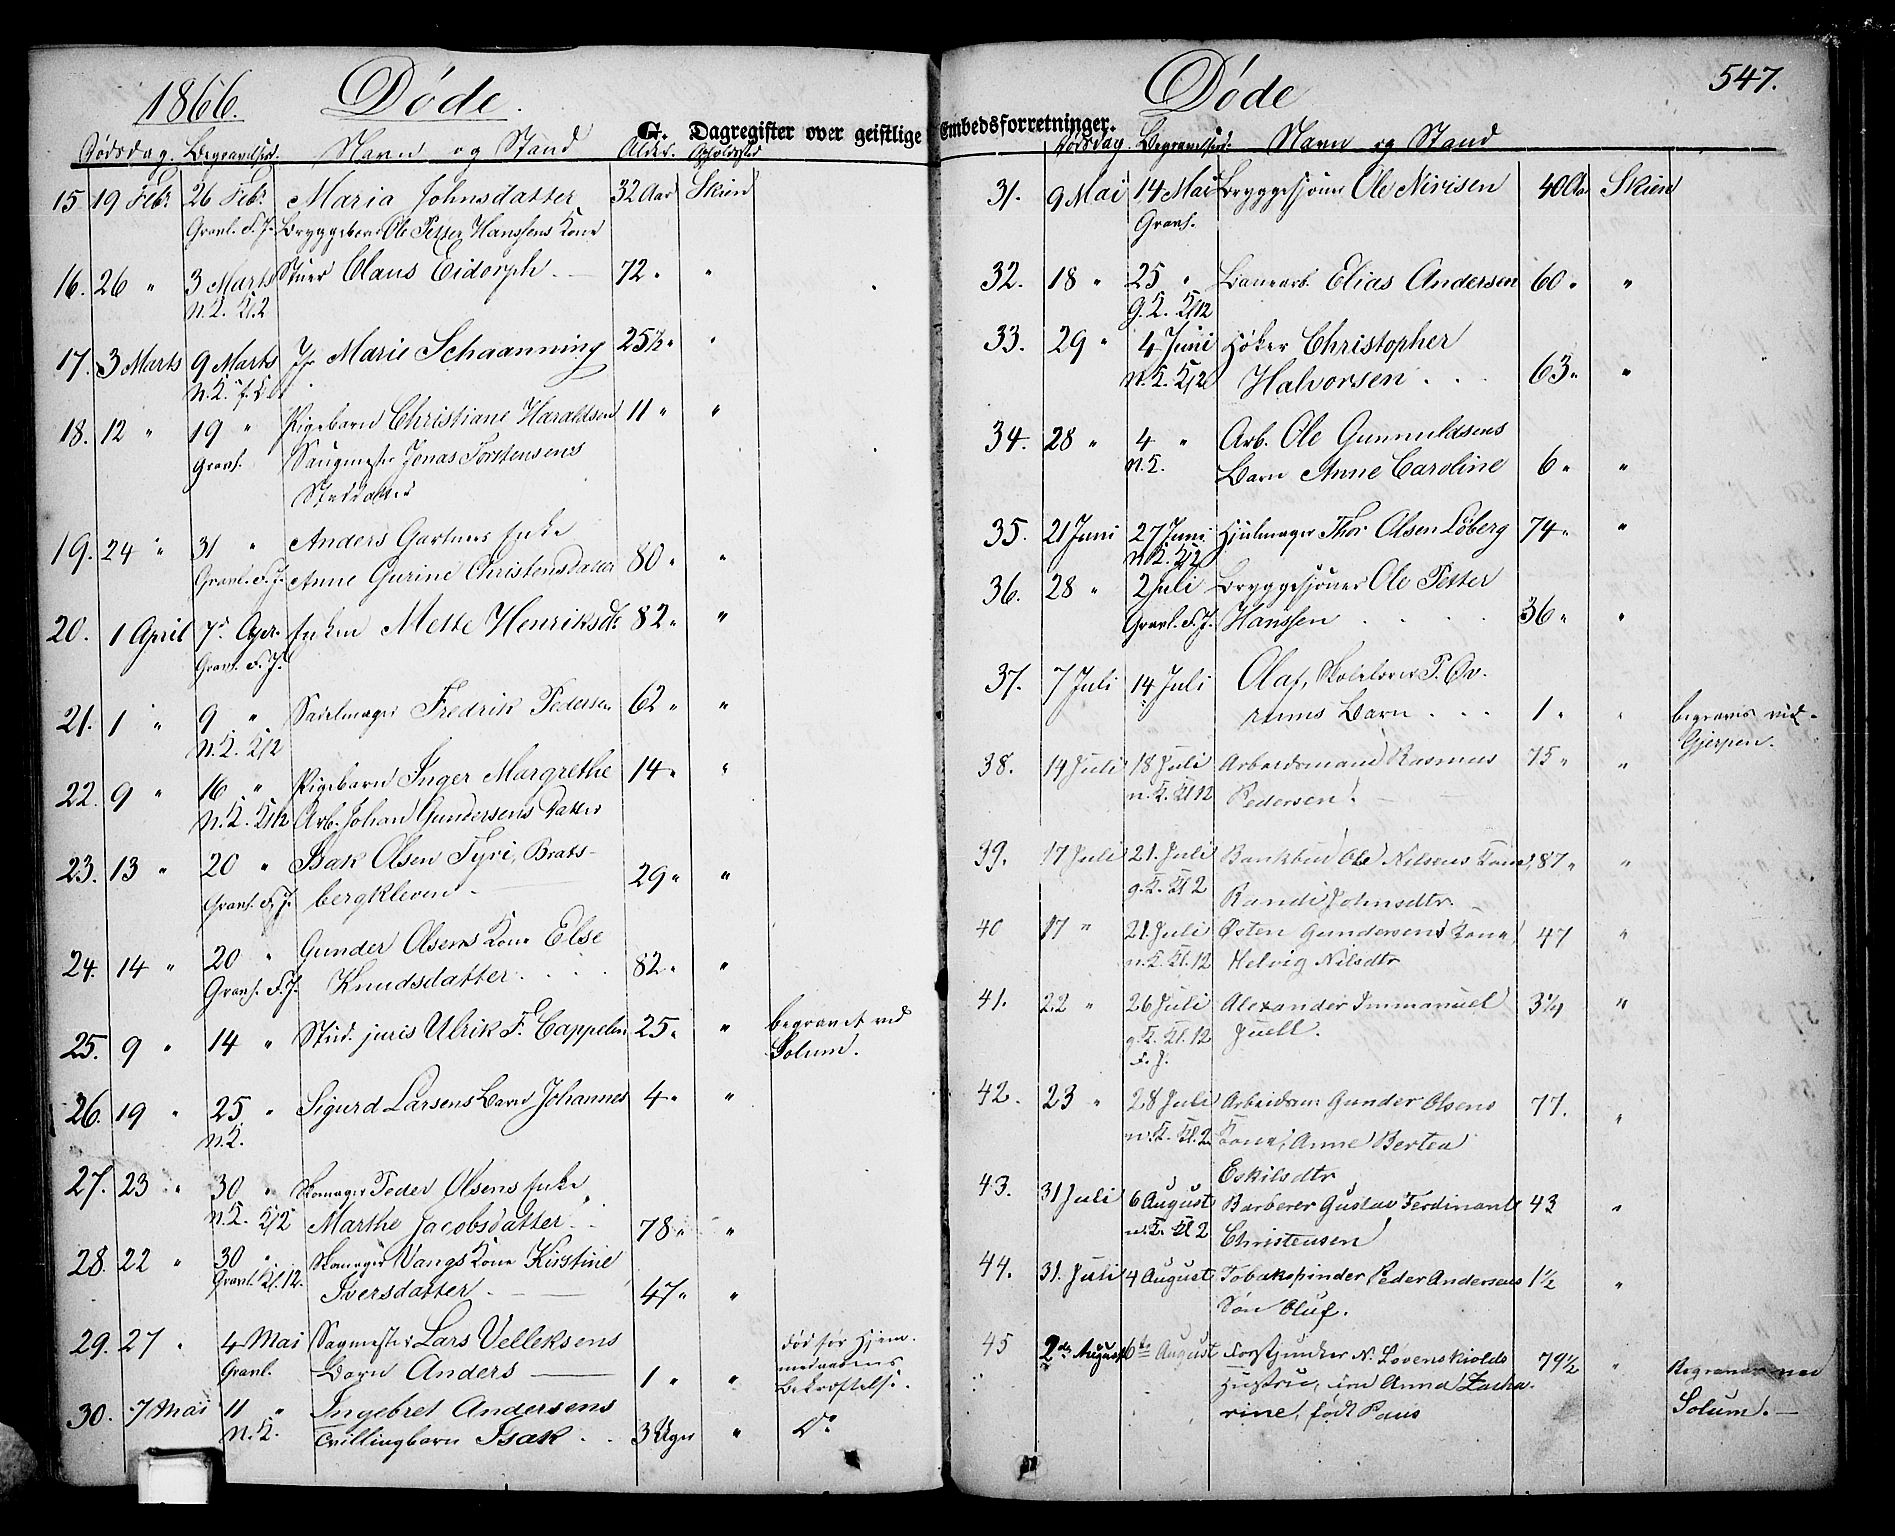 1866. Døde.
G. Dagregister over geistlige
Dødsdag. Begravelsesd. Navn og Stand Alder. Opholdssted
15 19 Febr. 26 Febr. Maria Johnsdatter 32 Aar Skien
Gravl. F. J. Bryggebor. Ole Petter Hanssens Kone
16. 26 " 3 Marts Claus Eidorph. 72 " "
N.K. Kl. 2
17. 3 Marts 9 Marts Jfr Marie Schaanning 25½ " "
N.K.
18. 12 " 19 " Pigebarn Christiane Haraldsen 11 " "
Gravl. Saugmester Jonas Torstensens
Steddatter
19. 24 " 31 " Anders Gartners Enke
Gravl. F. J. Anne Gurine Christensdatter 80 " "
20. 1 April 7d Apr. Enken Mette Henriksdtr 82 " "
Gravl. F. J.
21. 1 " 9 " Sadelmager Fredrik Pedersen 62 " "
N.K. Kl 2
22. 9 " 16 " Pigebarn Inger Margrethe 14 " "
N.K. Kl 12 Arb. Johan Gundersens Datter
23. 13 " 20 " Isak Olsen Tyri, Brats-
Gravl. F. J. bergkleven 29 " "
24. 14 " 20 " Gunder Olsens Kone Else
Gravl. F. J. Knudsdatter. 82 " "
25. 9 " 14 " Stud. juris Ulrik F. Cappelen 25 " " begravet ved
Solum.
26. 19 " 25 " Sigurd Larsens Barn Johannes 4 " "
N.K.
27. 23 " 30 " Skomager Peder Olsens Enke
N.K. Kl 2 Marthe Jacobsdatter 78 " "
28. 22 " 30 " Skomager Vangs Kone Kirstine
Gravl. Kl. 12. Iversdatter 47 " "
29. 27 " 4 Mai Sagmester Lars Velleksens død før Hjem-
Gravl. Barn Anders 1 " " medaabens
Bekræftelse.
30. 7 Mai 11 " Ingebret Andersens
N.K. Tvillingbarn Isak 3 Uger " Do
Døde 547.
Embedsforretninger.
Dødsdag. Begravelsesd. Navn og Stand
31. 9 Mai 14 Mai Bryggesjouer Ole Nirisen 40 Aar Skien
Gravl.
32. 18 " 25 " Elias Andersen 60 " "
G.K. Kl 12
33. 29 " 4 Juni Høker Christopher
N.K. Kl 2 Halvorsen 63 " "
34. 28 " 4 " Arb. Ole Gunnuldsens
N.K. Barn Anne Caroline 6 " "
35. 21 Juni 27 Juni Hjulmager Thor Olsen Løberg 74 " "
N.K. Kl 2
36. 28 " 2 Juli Bryggesjouer Ole Petter
Gravl. F. J. Hanssen 36 " "
37. 7 Juli 14 Juli Olaf, Skolelærer P. Qv.
rnms Barn 1 " " begraves ved
Gjerpen.
38. 14 Juli 18 Juli Arbeidsmand Rasmus 75 " "
n.K. Kl 12 Pedersen.
39. 17 Juli 21. Juli Bankbud Ole Nilsens Kone, 87 " "
g.K. Kl 2 Randi Johnsdtr.
40 17 " 21. Juli Østen Gundersens Kone 47 "
n.K. Kl. 12 Helvig Nilsdtr
41. 22 " 26 Juli Alexander Immanuel 3¼ "
g.K. Kl. 12 Juell.
F. J.
42. 23 " 28 Juli Arbeidsm: Gunder Olsens 77. "
n.K. Kl. 2 Kone, Anne Bertea
Eskilsdtr
43. 31 Juli 6 August Barberer Gustav Ferdinant 43 "
n.K. Kl 2 Christensen
44. 31. Juli 4 August Tobakspinder Peder Andersens 1½ "
Søn Oluf.
45 2den August 6te August Forstjunker N. Løvenskiolds 79½ " Begraves ved
Hustru, Anna Zacha-
rine, født Paus Solum.